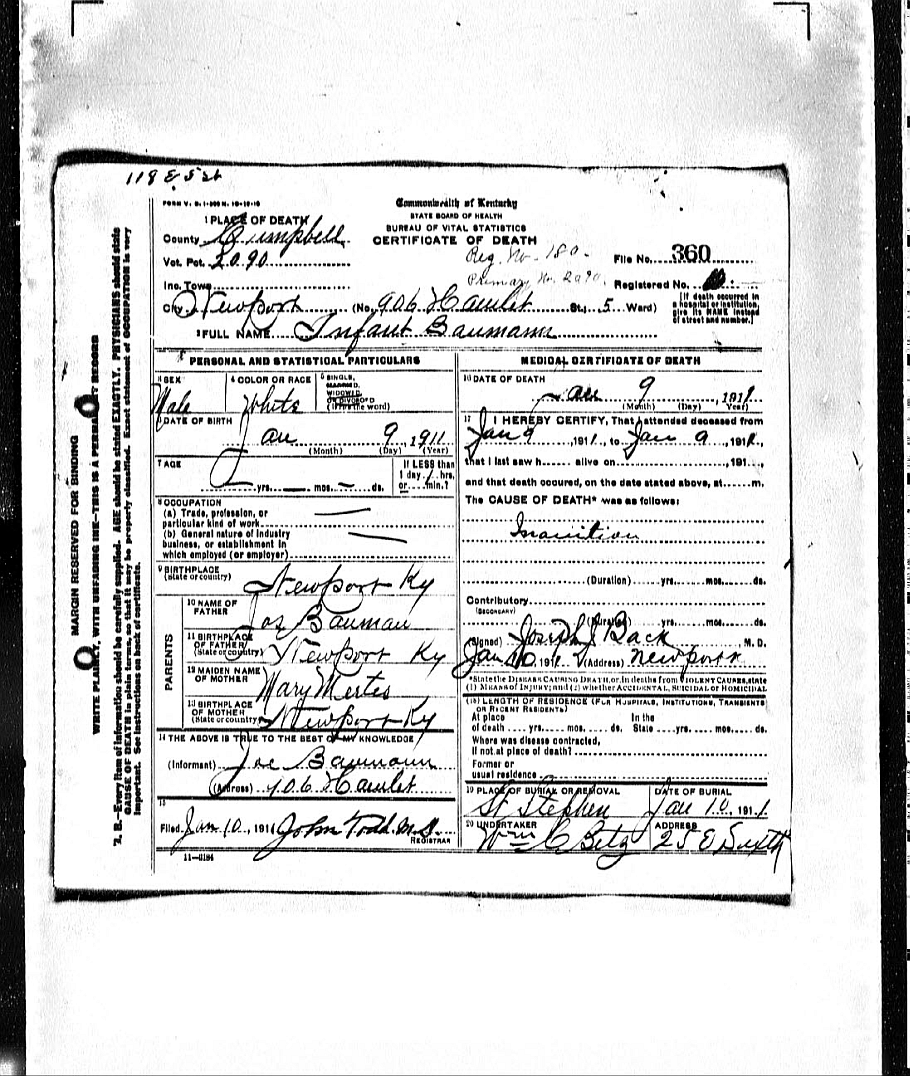 118 E 5 st
FORM V. S. 1-
Commonwealth of Kentucky
STATE BOARD OF HEALTH
BUREAU OF VITAL STATISTICS
CERTIFICATE OF DEATH
1 PLACE OF DEATH
County Campbell
Vot. Pct. 2090
Reg. No. 180
File No. 360
Primary No. 2090
Inc. Town
Registered No.
City Newport (No. 906 Hamlet St., 5 Ward)
[If death occurred in a hospital or institution, give its NAME instead of street and number.]
2 FULL NAME Infant Baumann
PERSONAL AND STATISTICAL PARTICULARS
3 SEX
Male
4 COLOR OR RACE
White
5 SINGLE, MARRIED, WIDOWED, OR DIVORCED
(Write the word)
6 DATE OF BIRTH
Jan 9, 1911
(Month) (Day) (Year)
7 AGE
yrs. mos. ds.
If LESS than
1 day, 1 hrs.
or min.?
8 OCCUPATION
(a) Trade, profession, or
particular kind of work
(b) General nature of industry
business, or establishment in
which employed (or employer)
9 BIRTHPLACE
(State or country)
Newport Ky
PARENTS
10 NAME OF
FATHER
Jos Bauman
11 BIRTHPLACE
OF FATHER
(State or country)
Newport Ky
12 MAIDEN NAME
OF MOTHER
Mary Mertes
13 BIRTHPLACE
OF MOTHER
(State or country)
Newport Ky
14 THE ABOVE IS TRUE TO THE BEST OF MY KNOWLEDGE
(Informant) Joe Baumann
(Address) 906 Hamlet
15
Filed Jan 10, 1911 John Todd M.D.
REGISTRAR
11-3184
MEDICAL CERTIFICATE OF DEATH
16 DATE OF DEATH
Jan 9, 1911
(Month) (Day) (Year)
17 I HEREBY CERTIFY, That I attended deceased from
Jan 9, 1911, to Jan 9, 191
that I last saw h alive on , 191
and that death occured, on the date stated above, at m.
The CAUSE OF DEATH* was as follows:
Inanition
(Duration) yrs. mos. ds.
Contributory
(SECONDARY)
(Duration) yrs. mos. ds.
(Signed) Joseph J Back M. D.
Jan 10 191 (Address) Newport
*State the DISEASE CAUSING DEATH, or, in deaths from VIOLENT CAUSES, state
(1) MEANS OF INJURY; and (2) whether ACCIDENTAL, SUICIDAL or HOMICIDAL
18 LENGTH OF RESIDENCE (FOR HOSPITALS, INSTITUTIONS, TRANSIENTS
OR RECENT RESIDENTS)
At place
of death yrs. mos. ds.
In the
State yrs. mos. ds.
Where was disease contracted,
If not at place of death?
Former or
usual residence
19 PLACE OF BURIAL OR REMOVAL
St Stephen
DATE OF BURIAL
Jan 10, 1911
20 UNDERTAKER
Wm C Betz
ADDRESS
25 E Sixth
MARGIN RESERVED FOR BINDING
WRITE PLAINLY, WITH UNFADING INK—THIS IS A PERMANENT RECORD
N. B.—Every item of information should be carefully supplied. AGE should be stated EXACTLY. PHYSICIANS should state
CAUSE OF DEATH in plain terms, so that it may be properly classified. Exact statement of OCCUPATION is very
important. See instructions on back of certificate.